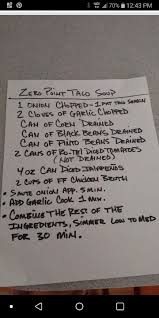 70% 12:43 PM
ZERO POINT TACO SOUP
1 ONION CHOPPED - 1 PKT TACO SEASON
2 CLOVES OF GARLIC CHOPPED
CAN OF CORN DRAINED
CAN OF BLACK BEANS DRAINED
CAN OF PINTO BEANS DRAINED
2 CANS OF RO-TEL DICED TOMATOES
(NOT DRAINED)
4 OZ CAN DICED JALAPEÑOS
2 CUPS OF FF CHICKEN BROTH
• SAUTE ONION APP. 5 MIN.
• ADD GARLIC COOK 1 MIN.
• COMBINE THE REST OF THE
INGREDIENTS, SIMMER LOW TO MED
FOR 30 MIN.